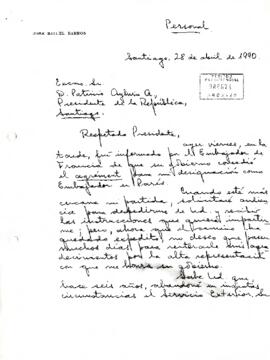 Personal
JOSE MIGUEL BARROS
Santiago, 28 de abril de 1990.
Excmo. Sr.
D. Patricio Aylwin A.,
Presidente de la República,
Santiago.
Respetado Presidente,
ayer viernes, en la
tarde, fui informado por el Embajador de
Francia de que su gobierno concedió
el agrément para mi designación como
Embajador en París.
Cuando esté más
cercana mi partida, solicitaré audien
cia para despedirme de Ud. y recibir
las instrucciones que quiera impartir
me; pero, ahora que el camino ha
quedado expedito, no deseo que pasen
muchos días para reiterarle mis agra
decimientos por la alta representación
con que me honra su gobierno.
Sabe Ud. que,
hace seis años, abandoné en ingratas
circunstancias el Servicio Exterior, en